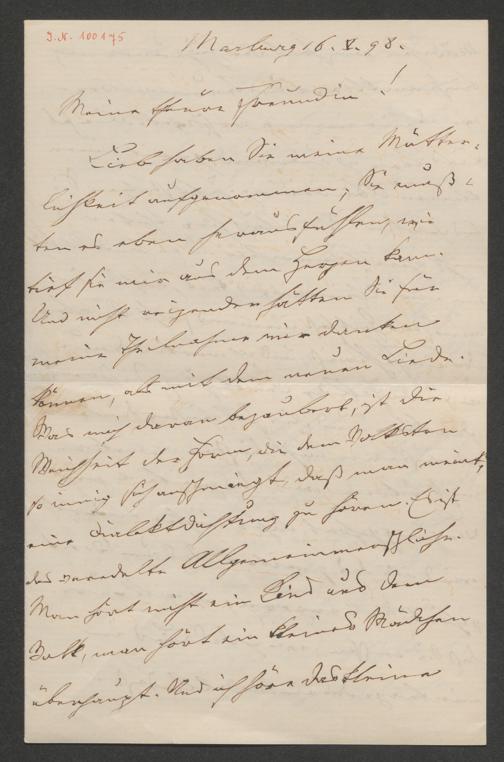 J.N. 100175
Marburg 16. X. 98.
Meine theure Freundin!
Lieb haben Sie meine Mütter-
lichkeit aufgenommen; Sie muß-
ten es eben herausfühlen, wie
tief sie mir aus dem Herzen kam.
Und nicht reizender hätten Sie für
meine Theilnahme mir danken
können, als mit dem neuen Liede.
Was mich daran bezaubert, ist die
Weichheit der Form, die dem Volkston
so innig sich anschmiegt, daß man meint,
eine Dialektdichtung zu hören. Es ist
das veredelte Allgemeinmenschliche.
Man hört nicht ein Kind aus dem
Volk, man hört ein kleines Mädchen
überhaupt. Und ich höre das kleine